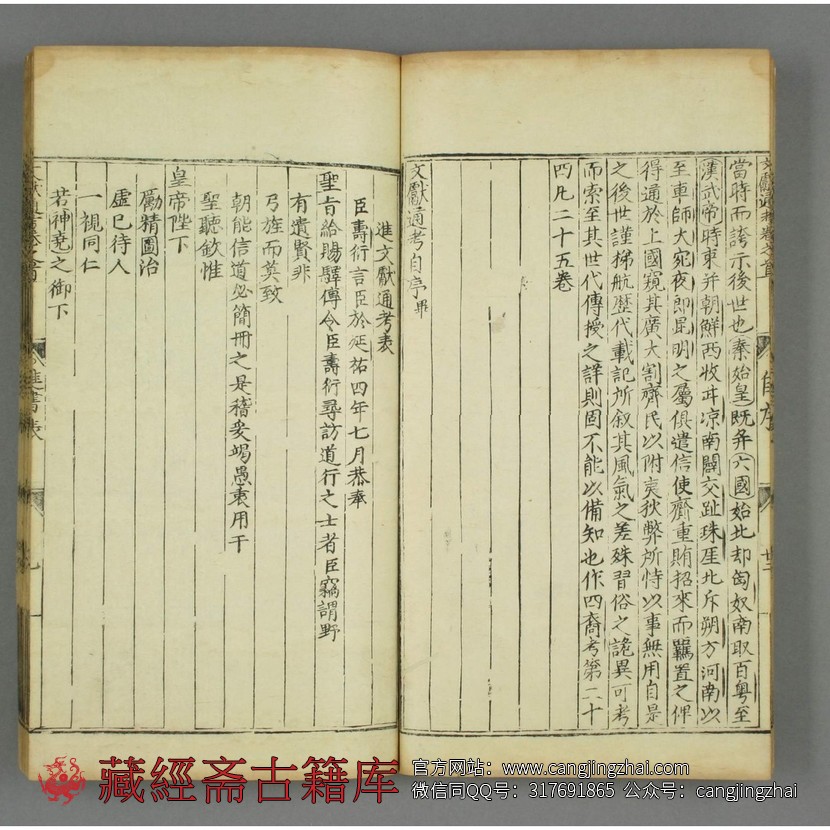 當時而誇示後世也秦始皇既并六國始北却匈奴南取百粤至
漢武帝時東并朝鮮西收河凉南闢交趾珠厓北斥朔方河南以
至車師大宛夜郎昆明之屬俱遣信使齎重賄招來而羈置之俾
得通於上國窺其廣大割齊民以附夷狄弊所恃以事無用自是
之後世謹梯航歷代載記所叙其風氣之差殊習俗之詭異可考
而索至其世代傳授之詳則固不能以備知也作四裔考第二十
四凡二十五卷
文獻通考自序畢
進文獻通考表
臣壽衍言臣於延祐四年七月恭奉
聖旨給賜驛傳令臣壽衍尋訪道行之士者臣竊謂野
有遺賢非
弓旌而莫致
朝能信道必簡冊之是稽妥竭愚衷用干
聖聽欽惟
皇帝陛下
勵精圖治
虛己待人
一視同仁
若神堯之御下
進書表
藏經斋古籍库
官方网站：www.cangjingzhai.com
微信同QQ号：317691865 公众号：cangjingzhai